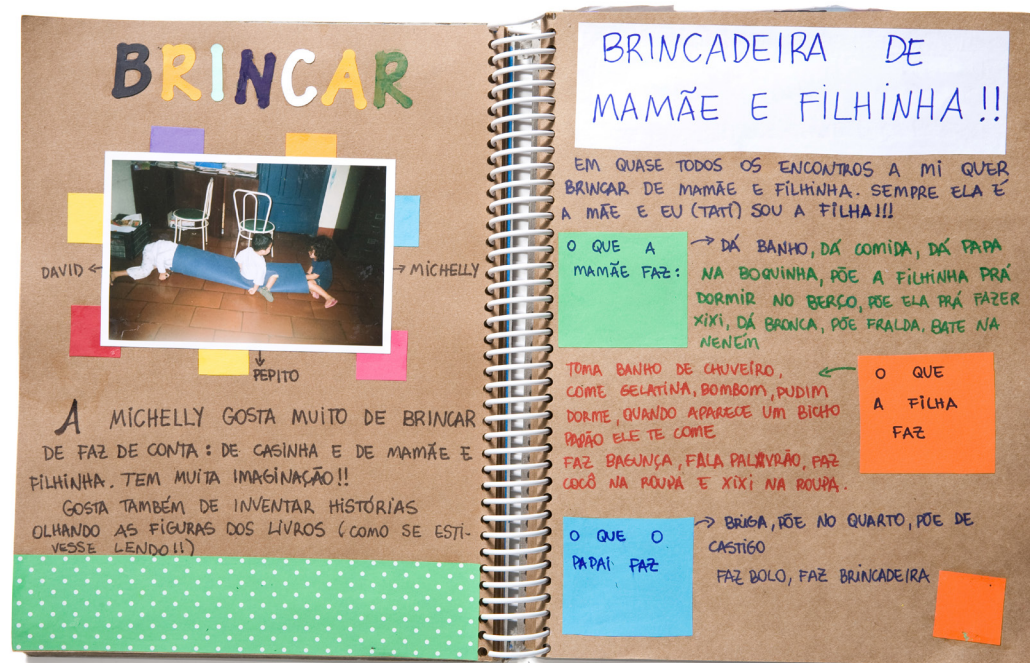 BRINCAR
DAVID
MICHELLY
PEPITO
A MICHELLY GOSTA MUITO DE BRINCAR
DE FAZ DE CONTA: DE CASINHA E DE MAMÃE E
FILHINHA. TEM MUITA IMAGINAÇÃO!!
GOSTA TAMBÉM DE INVENTAR HISTÓRIAS
OLHANDO AS FIGURAS DOS LIVROS (COMO SE ESTI-
VESSE LENDO!!)
BRINCADEIRA DE
MAMÃE E FILHINHA!!
EM QUASE TODOS OS ENCONTROS A MI QUER
BRINCAR DE MAMÃE E FILHINHA. SEMPRE ELA É
A MÃE E EU (TATÍ) SOU A FILHA!!!
O QUE A
MAMÃE FAZ:
DÁ BANHO, DÁ COMIDA, DÁ PAPA
NA BOQUINHA, PÕE A FILHINHA PRÁ
DORMIR NO BERÇO, PÕE ELA PRÁ FAZER
XIXI, DÁ BRONCA, PÕE FRALDA, BATE NA
NENÉM
TOMA BANHO DE CHUVEIRO,
COME GELATINA, BOMBOM, PUDIM
DORME, QUANDO APARECE UM BICHO
PAPÃO ELE TE COME
FAZ BAGUNÇA, FALA PALAVRÃO, FAZ
COCÔ NA ROUPA E XIXI NA ROUPA.
O QUE
A FILHA
FAZ
O QUE O
PAPAI FAZ
BRIGA, PÕE NO QUARTO, PÕE DE
CASTIGO
FAZ BOLO, FAZ BRINCADEIRA